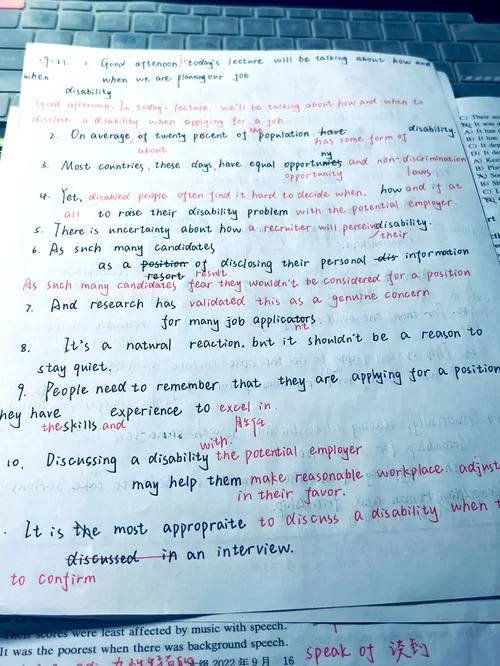 9-21. 1 Good afternoon. today's lecture will be talking about how and
when when we are planning our job
disability
Good afternoon. In today's lecture, we'll be talking about how and when to
disclose a disability when applying for a job.
2. On average, of twenty pecent of the population have disability.
about has some form of
3. Most countries, these days, have equal opportunities and non-discrimination
ny opportunity laws
4. Yet, disabled people often find it hard to decide when. how and if at
all to raise their disability problem with the potential employer.
5. There is uncertainty about how a recruiter will perceive disability.
their
6. As such many candidates
as a position of disclosing their personal dis information
resort result
As such many candidates fear they wouldn't be considered for a position
7. And research has validated this as a genuine concern
for many job applicators.
nt
8. It's a natural reaction. but it shouldn't be a reason to
stay quiet.
9. People need to remember that they are applying for a position
they have experience to excel in.
the skills and 胜任
with.
10. Discussing a disability the potential employer
may help them make reasonable workplace adjust
in their favor.
. It is the most appropraite to discuss a disability when t
discussed in an interview.
to confirm
Their scores were least affected by music with speech.
It was the poorest when there was background speech.
2022 年 9 月 16
speak of 谈到